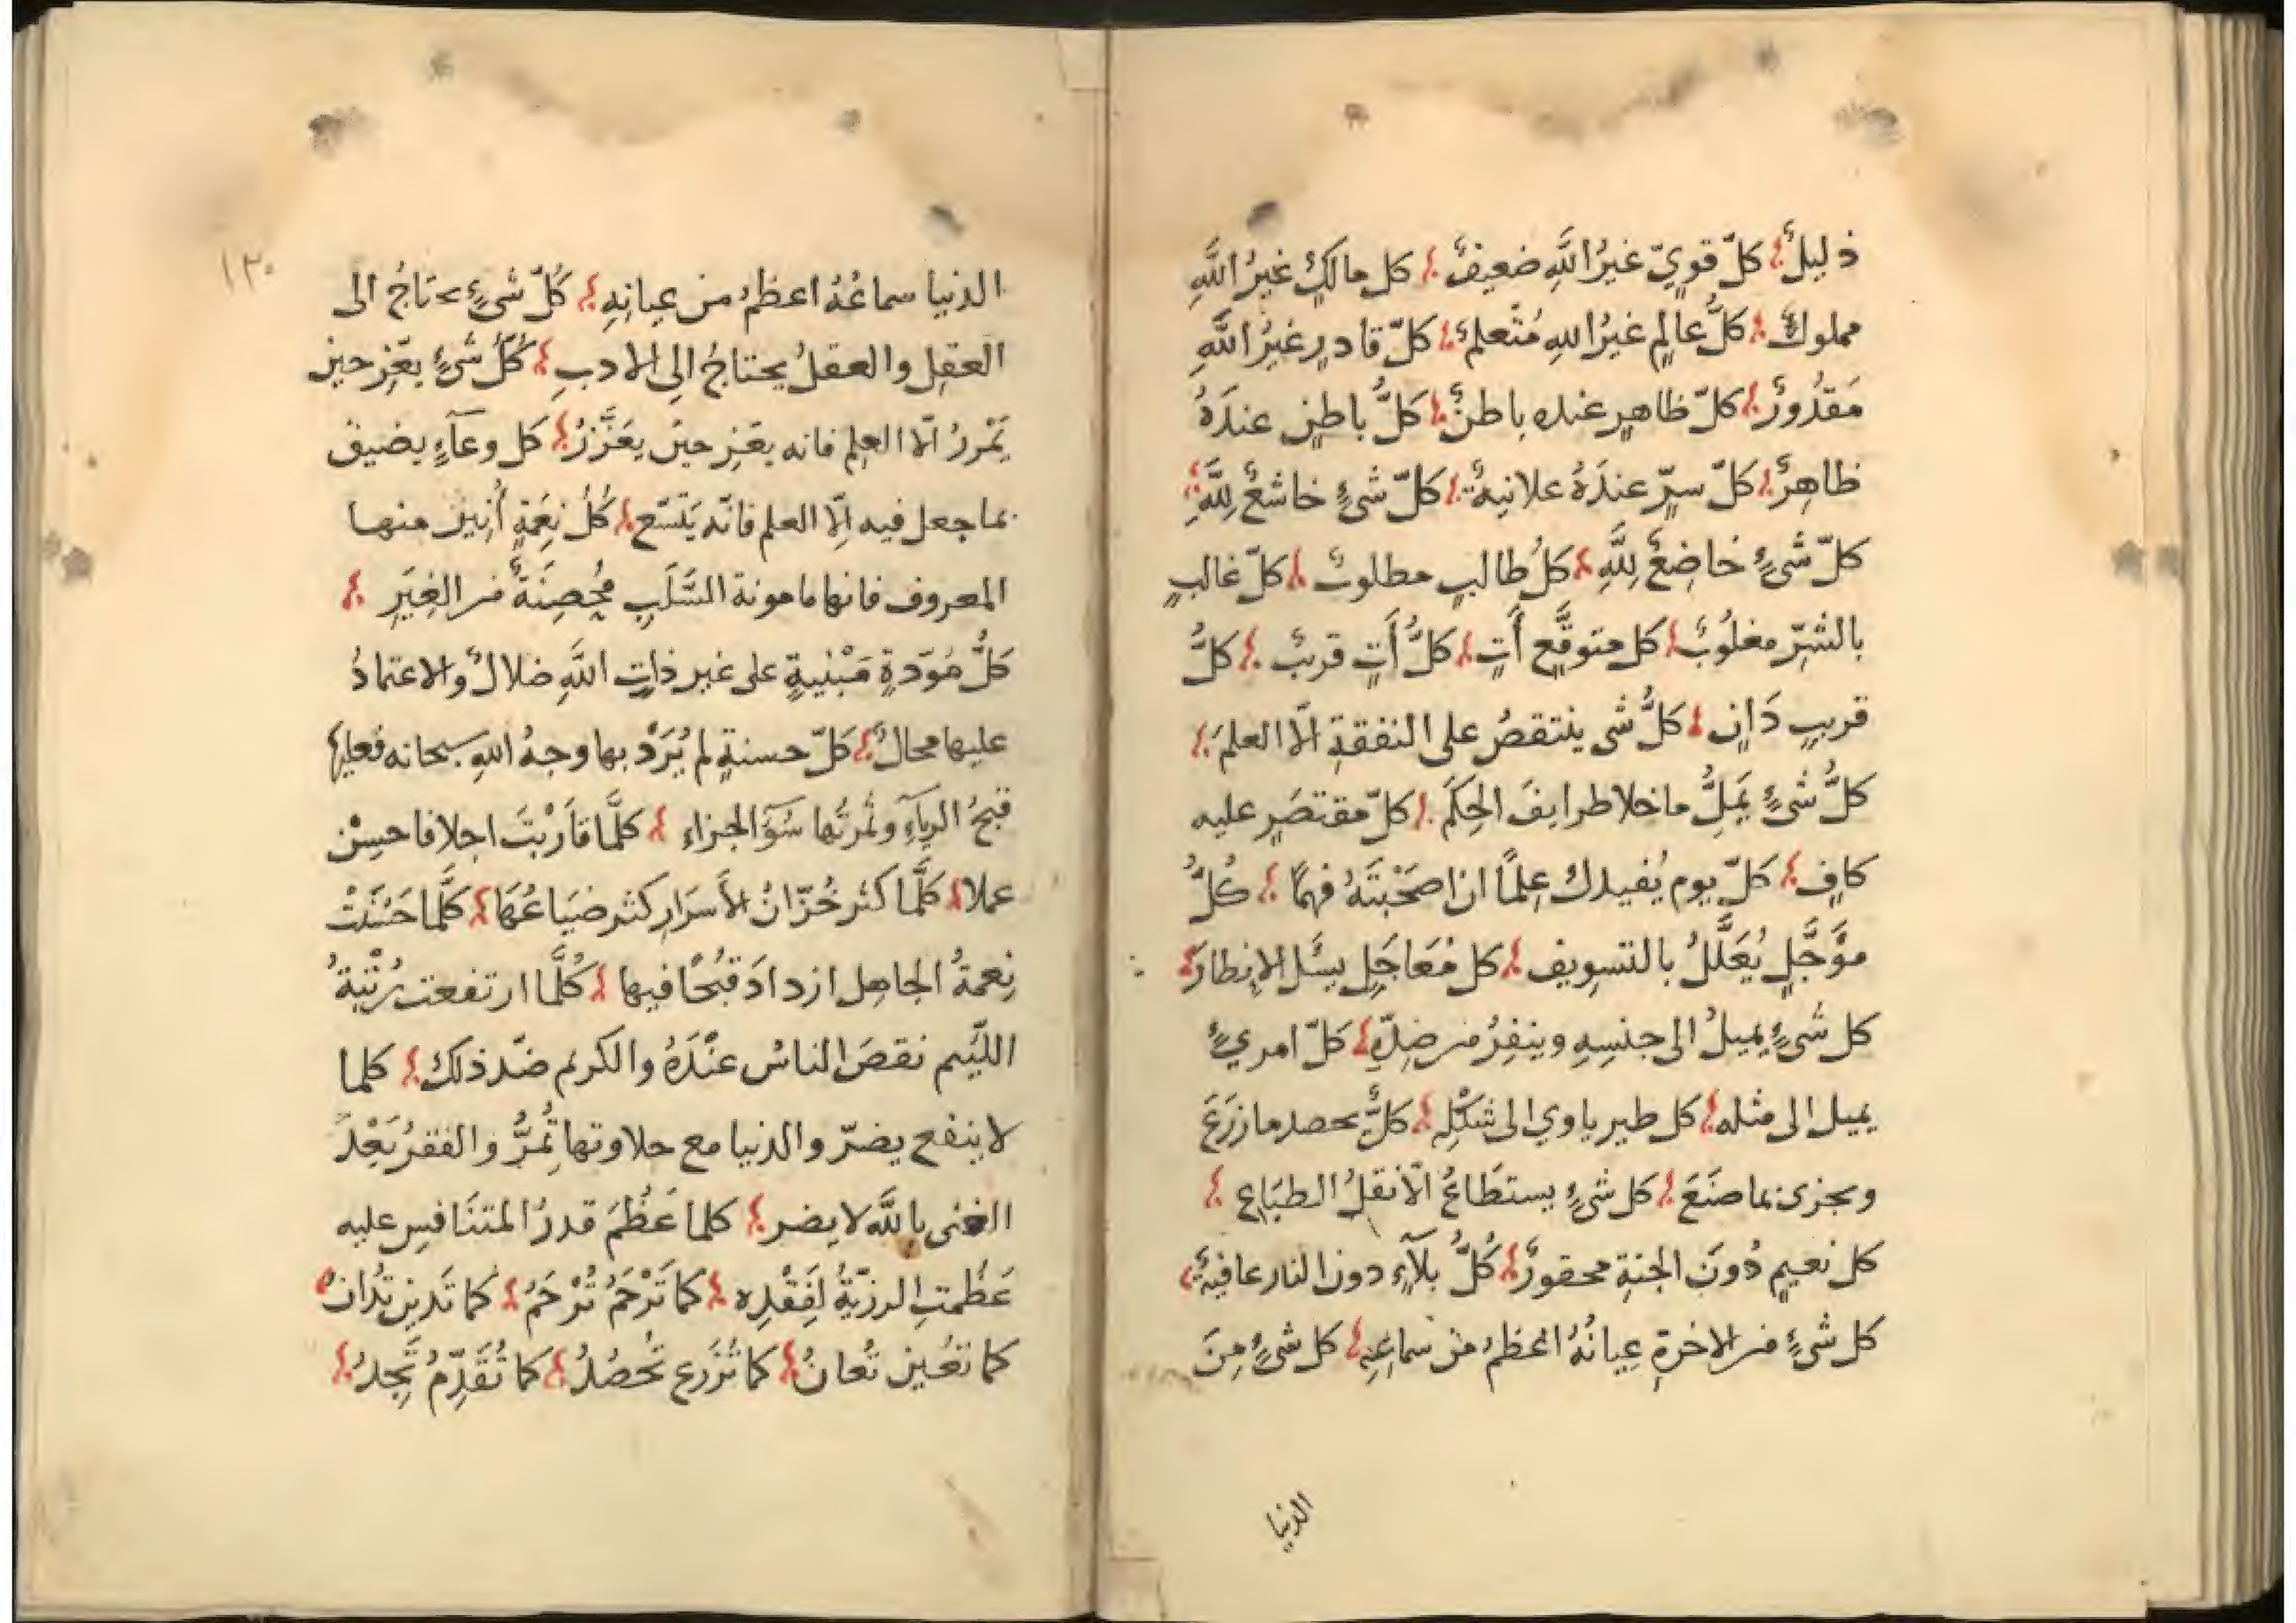 ذليلٌ كلّ قويّ غيرُ اللَّهِ ضعيفٌ كل مالكٍ غيرُ اللَّهِ
مملوكٌ كلُّ عالِمٍ غيرُ اللهِ مُتَعلمٌ كلّ قادرٍ غيرُ اللَّهِ
مَقدُورٌ كلّ ظاهرٍ عنده باطنٌ كلُّ باطنٍ عندَهُ
ظاهِرٌ كلّ سرٍّ عندَهُ علانيةٌ كلّ شىءٍ خاشعٌ لِلَّهِ
كلّ شىءٍ خاضِعٌ لِلَّهِ كلُ طالبٍ مطلوبٌ كلّ غالبٍ
بالشرِّ مغلُوبٌ كل متوقَّعٍ أَتٍ كلُّ أَتٍ قريبٌ كلُّ
قريبٍ دَانٍ كلُّ شى ينتقصُ على النفقةِ الّا العلمَ
كلُّ شىءٍ يَمَلُّ ماخلا طرايفَ الحِكَمَ كلّ مقتصَرٍ عليه
كافٍ كلّ يوم يُفيدك عِلماً ان اصحَبْتَهُ فهمًا كُلُّ
مؤَجَّلٍ يُعَلَّلُ بالتسويف كل مُعَاجَلٍ يسَٔل الانظارَ
كل شىءٍ يميلُ الى جنسِهِ وينفِرُ من ضِدِّهِ كلّ امريءٍ
يميل الى مثله كل طير ياوي الى شكْلِهِ كلٌّ يحصد ما زرَعَ
ويجزى بما صنَعَ كل شىءٍ يستطَاعُ الّا نقلُ الطبَاعِ
كل نعيمٍ دُونَ الجنةِ محقورٌ كُلُّ بلآءٍ دون النار عافيةٌ
كل شىءٍ من الاخرةِ عِيانُهُ اعظمُ من سماعِهِ كل شىءٍ مِنَ
الدنيا
١٣٠
الدنيا سماعُهُ اعظمُ من عِيانِهِ كُلّ شىءٍ يحتاجُ الى
العقلِ والعقلُ يحتاجُ الى الادبِ كُلّ شىءٍ يعِّز حين
يَنْررُ الّا العلِم فانه يعِّز حين يغَزَّرُ كل وعآءٍ يضيق
بما جعل فيه اِلّا العلم فانّه يَتّسَع كُلُ نِعَمةٍ أُنِيل منها
المعروف فانها مامونة السَّلَبِ مُحصِنَةٌ من الغِيَرِ
كلُّ مُوَدةٍ مَبْنيةٍ على غير ذاتِ اللَّهِ ضلالٌ والاعتمادُ
عليها محالٌ كلّ حسنةٍ لم يُرَدْ بها وجهُ اللهِ سبحانه فعليها
قبحُ الرياَءِ وثمرتُها سُوَٓ الجزاء كلَّما قاَرَبْتَ اجلا فاحسِنْ
عملا كلَّما كثر خُزّانُ الأسرَارِ كثر ضيَاعُهَا كلَّما حَسُنَتْ
نِعمةُ الجاهل ازدادَ قبُحًا فيها كُلَّما ارتفعت رُتْبةُ
اللّئيم نقصَ الناسُ عنْدَهُ والكريم ضدّ ذلك كلما
لا ينفع يضرّ والدنيا مع حلاوتها تُمرُّ والفقرُ بَعْدَ
الغنى باللَّه لا يضر كلما عَظُمَ قدرُ المتنَافسِ عليه
عَظُمتِ الرزيّةُ لِفَقْدِه كما تَرْحَمُ تُرْحَمُ كما تَدين تُدانُ
كما تعُين تُعانُ كما تَزرع تحُصُدُ كما تُقَدِّمُ تَجِدُ